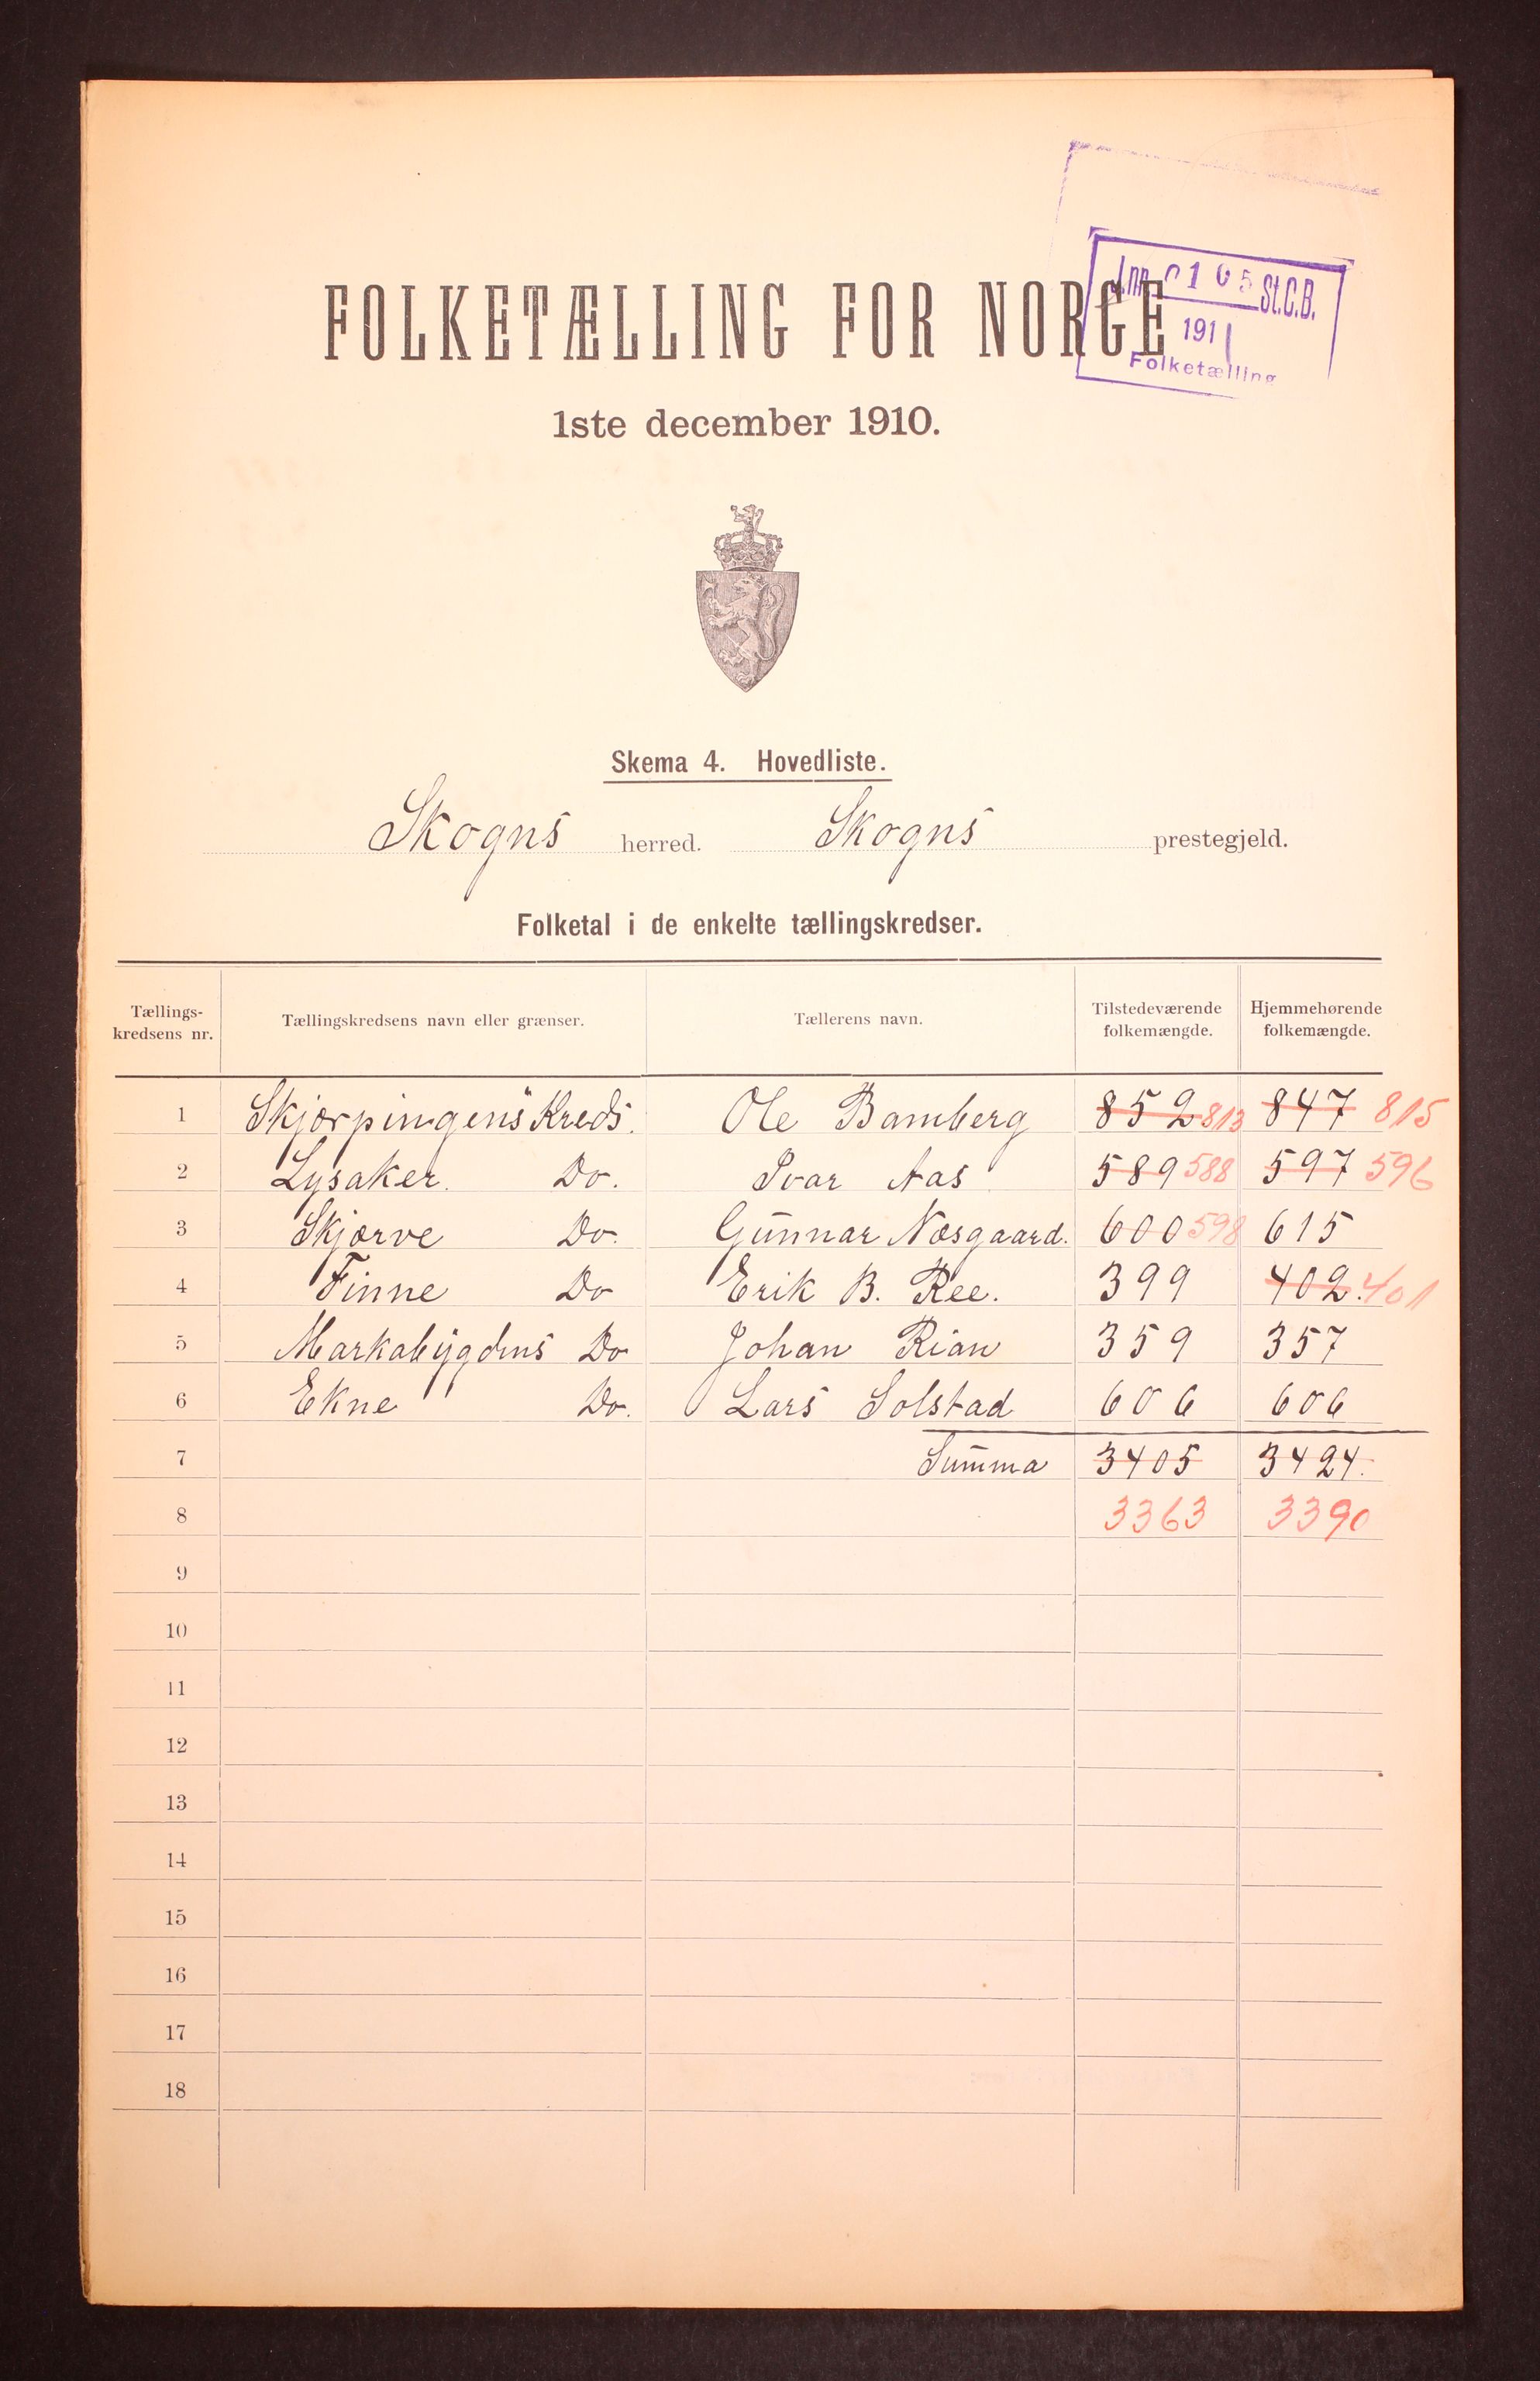 J.nr. 0105 St.C.B.
1911
Folketælling
FOLKETÆLLING FOR NORGE
1ste december 1910.
Skema 4. Hovedliste.
Skogns herred. Skogns prestegjeld.
Folketal i de enkelte tællingskredser.
Tællings-kredsens nr. Tællingskredsens navn eller grænser. Tællerens navn. Tilstedeværende folkemængde. Hjemmehørende folkemængde.
1 Skjørpingens Kreds. Ole Bamberg 852 813 847 815
2 Lysaker Do. Ivar Aas 589 588 597 596
3 Skjørve Do. Gunnar Næsgaard. 600 598 615
4 Finne Do Erik B. Ree. 399 402. 401
5 Markabygdens Do Johan Rian 359 357
6 Ekne Do. Lars Solstad 606 606
7 Summa 3405 3424.
8 3363 3390
9
10
11
12
13
14
15
16
17
18